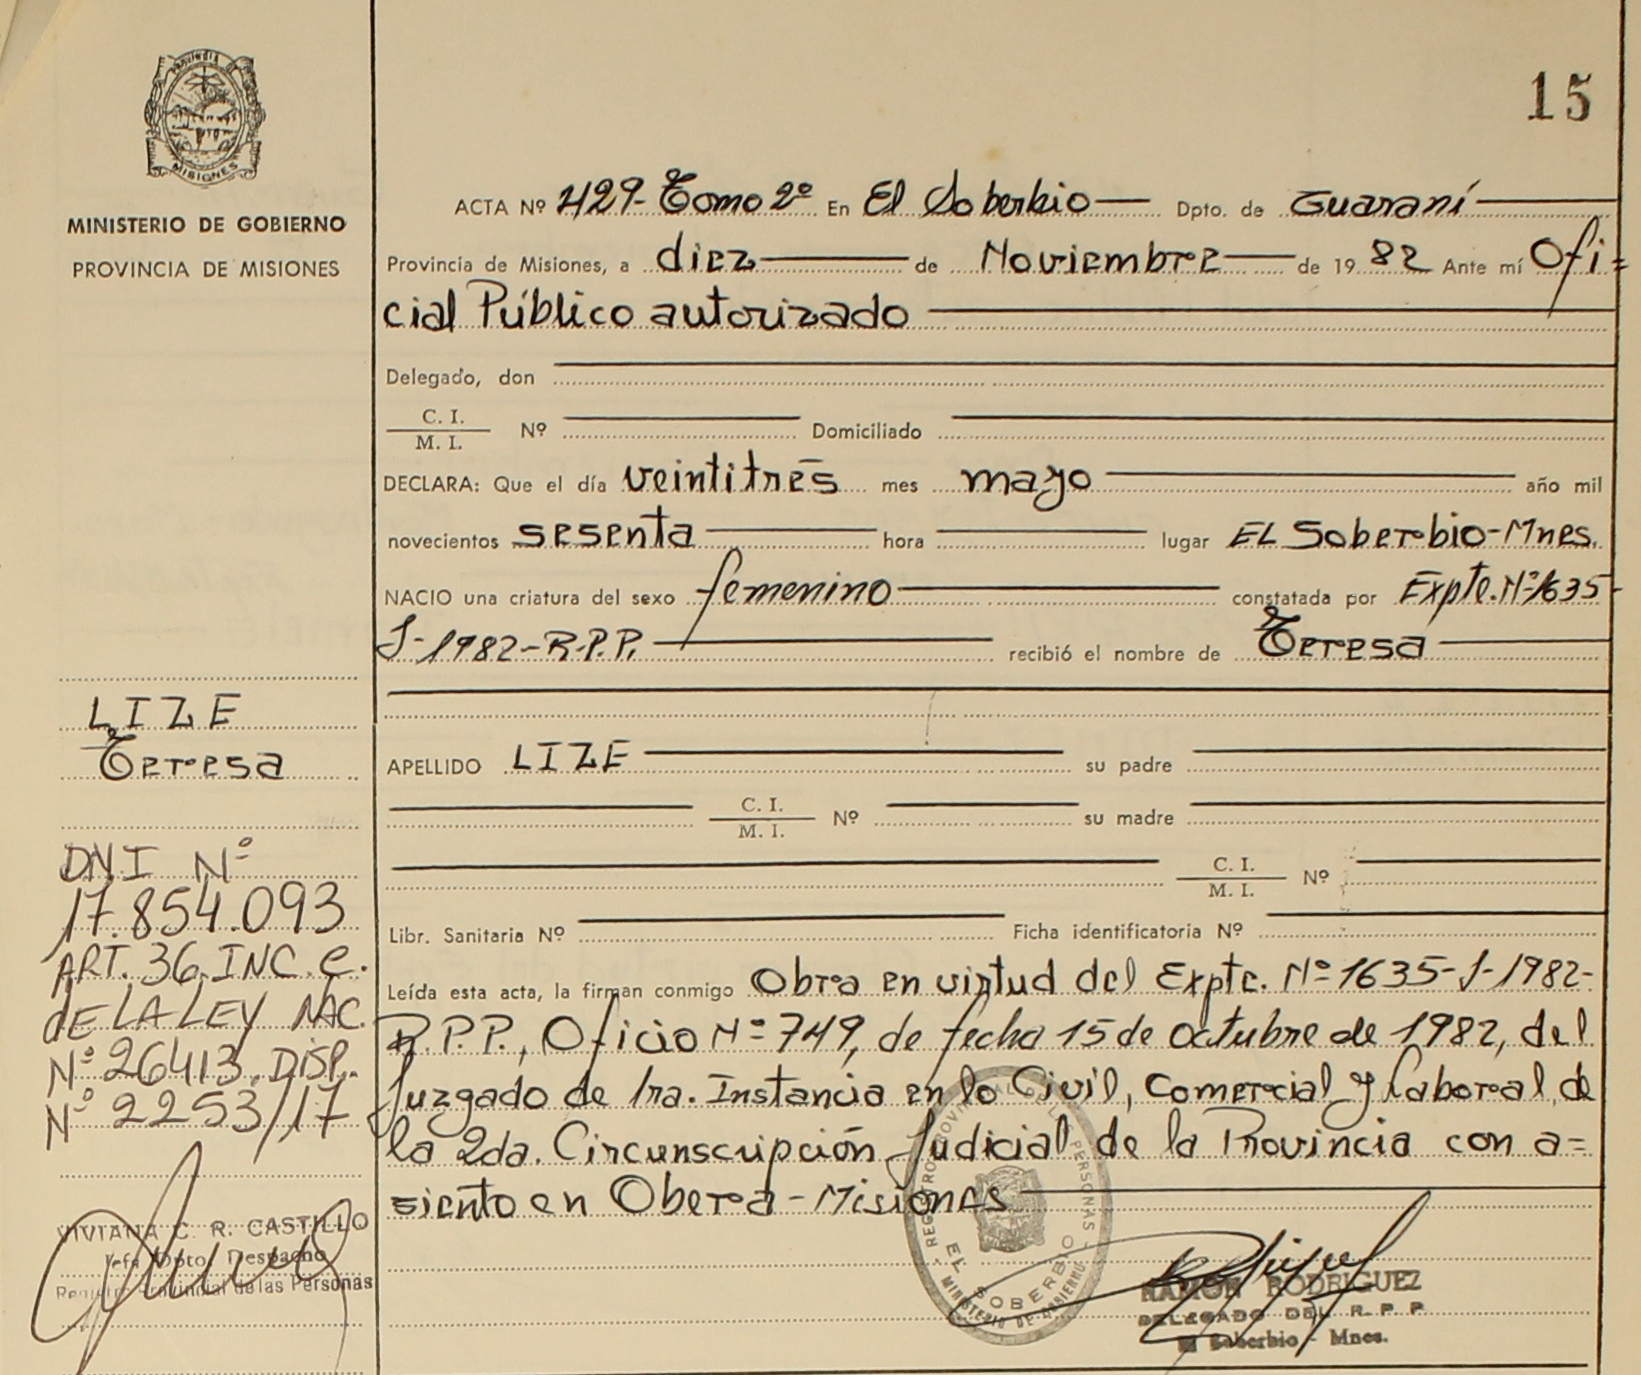 15
MISIONES
MINISTERIO DE GOBIERNO
PROVINCIA DE MISIONES
ACTA Nº 429- Tomo 2º En El Soberbio Dpto. de Guaraní
Provincia de Misiones, a diez de Noviembre de 1982 Ante mí Ofi=
cial Público autorizado
Delegado, don
C. I.
M. I. Nº Domiciliado
DECLARA: Que el día veintitrés mes mayo año mil
novecientos sesenta hora lugar EL Soberbio-Mnes.
NACIO una criatura del sexo femenino constatada por Expte. Nº 1635-
J-1982-R.P.P. recibió el nombre de Teresa
APELLIDO LIZE su padre
C. I.
M. I. Nº su madre
C. I.
M. I. Nº
Libr. Sanitaria Nº Ficha identificatoria Nº
Leída esta acta, la firman conmigo Obra en virtud del Expte. Nº 1635-J-1982-
R.P.P., Oficio Nº 749, de fecha 15 de octubre de 1982, del
Juzgado de 1ra. Instancia en lo Civil, Comercial y Laboral, de
la 2da. Circunscripción Judicial de la Provincia con a=
siento en Oberá-Misiones
LIZE
Teresa
DNI Nº
17.854.093
ART. 36, INC. e.
dE LA LEY NAC.
Nº 26413, DISP.
Nº 2253/17
VIVIANA C. R. CASTILLO
Jefa Dpto. Despacho
Registro Provincial de las Personas
REGISTRO PROVINCIAL DE LAS PERSONAS
EL SOBERBIO
MINISTERIO DE GOBIERNO
RAMON RODRIGUEZ
DELEGADO DEL R. P. P.
El Soberbio - Mnes.